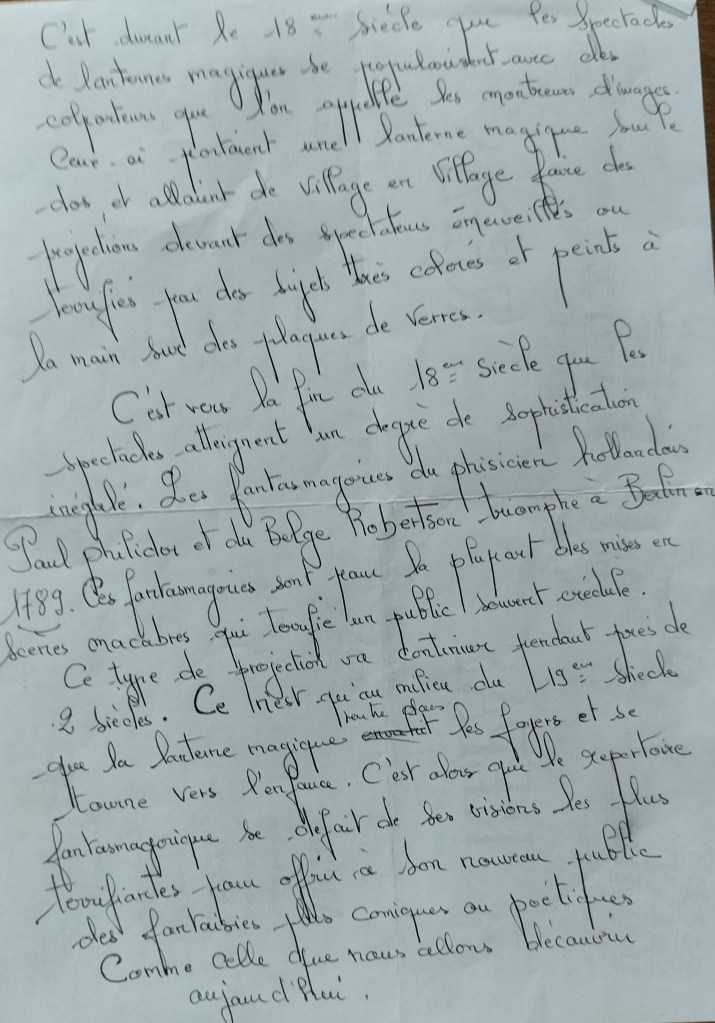 C'est durant le 18eme siècle que les spectacles
de lanternes magiques se popularisent avec des
colporteurs que l'on appelle les montreurs d'images.
Ceux-ci portaient une lanterne magique sur le
dos, et allaient de village en village faire des
projections devant des spectateurs émerveillés ou
terrifiés par des sujets très colorés et peints à
la main sur des plaques de verres.
C'est vers la fin du 18eme siècle que les
spectacles atteignent un degré de sophistication
inégalé. Les fantasmagories du phisicien hollandais
Paul philidor et du Belge Robertson triomphe à Berlin en
1789. Ces fantasmagories sont pour la plupart des mises en
scènes macabres qui terrifie un public souvent crédule.
Ce type de projection va continuer pendant près de
2 siècles. Ce n'est qu'au milieu du 19eme siècle
rentre dans
que la lanterne magique les foyers et se
tourne vers l'enfance. C'est alors que le repertoire
fantasmagorique se défait de ses visions les plus
terrifiantes pour offrir à son nouveau public
des fantaisies plus comiques ou poétiques
Comme celle que nous allons découvrir
aujourd'hui.